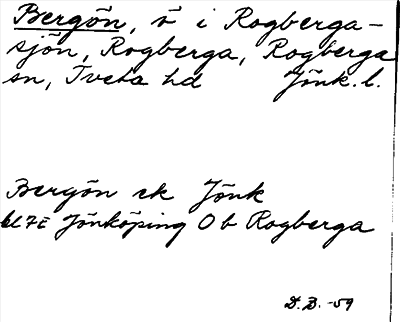 Bergön, ö i Rogberga-
sjön, Rogberga, Rogberga
sn, Tveta hd Jönk. l.
Bergön ek Jönk
bl 7E Jönköping Ob Rogberga
D.B. -59